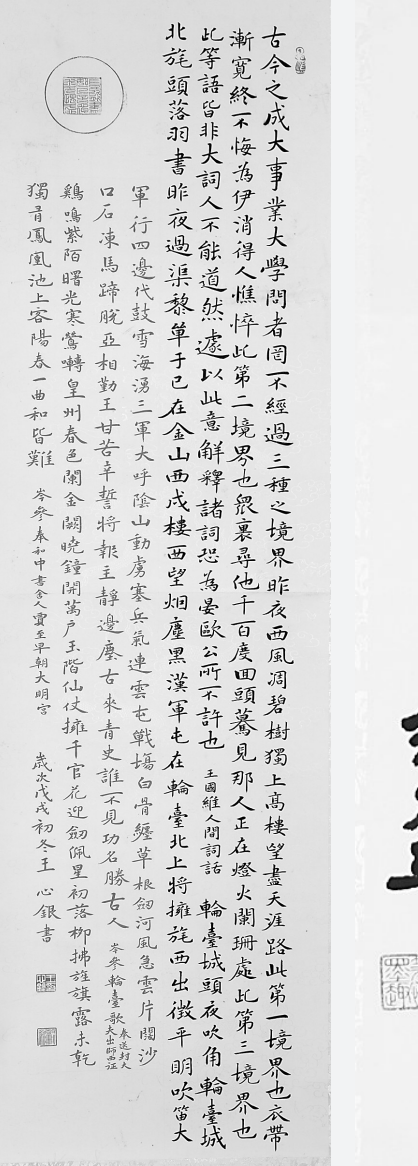 古今之成大事業大學問者罔不經過三種之境界昨夜西風凋碧樹獨上高樓望盡天涯路此第一境界也衣帶
漸寬終不悔為伊消得人憔悴此第二境界也眾裏尋他千百度回頭驀見那人正在燈火闌珊處此第三境界也
此等語皆非大詞人不能道然遽以此意解釋諸詞恐為晏歐公所不許也 王國維人間詞話 輪臺城頭夜吹角輪臺城
北旄頭落羽書昨夜過渠黎單于已在金山西戍樓西望烟塵黑漢軍屯在輪臺北上將擁旄西出徵平明吹笛大
軍行四邊代鼓雪海湧三軍大呼陰山動虜塞兵氣連雲屯戰場白骨纏草根劍河風急雲片闊沙
口石凍馬蹄脫亞相勤王甘苦辛誓將報主靜邊塵古來青史誰不見功名勝古人 岑參輪臺歌奉送封大夫出師西征
雞鳴紫陌曙光寒鶯囀皇州春色闌金闕曉鐘開萬戶玉階仙仗擁千官花迎劍佩星初落柳拂旌旗露未乾
獨有鳳凰池上客陽春一曲和皆難 岑參奉和中書舍人賈至早朝大明宮 歲次戊戌初冬王心銀書